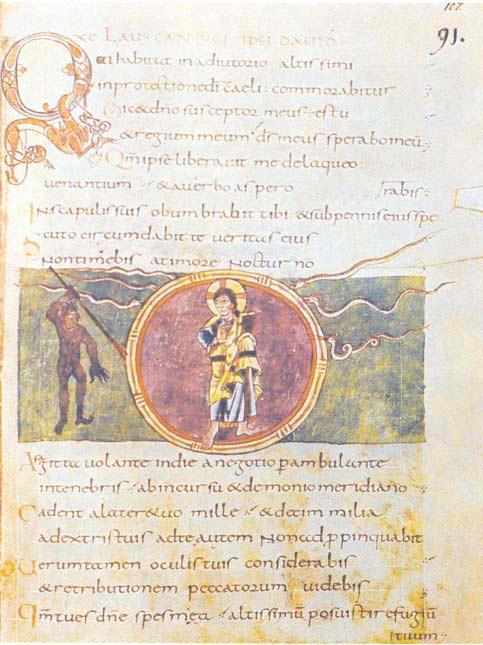 107.
91.
XC LAUS CANTICI IPSI DAVID
Qui habitat in adiutorio altissimi
in protectione di caeli commorabitur
Dic& dno susceptor meus es tu
& refugium meum ds meus sperabo in eū
Qm ipse liberavit me de laqueo
venantium & a verbo aspero
rabis
In scapulis suis obumbrabit tibi & sub pennis eius spe
Scuto circumdabit te veritas eius
Non timebis a timore nocturno
A sagitta volante in die a negotio pambulante
in tenebris ab incursu & demonio meridiano
Cadent a latere tuo mille & decim milia
a dextris tuis ad te autem non appropinquabit
Verumtamen oculis tuis considerabis
& retributionem peccatorum videbis
Qm tu es dne spes mea altissimū posuisti refugiū
tuum